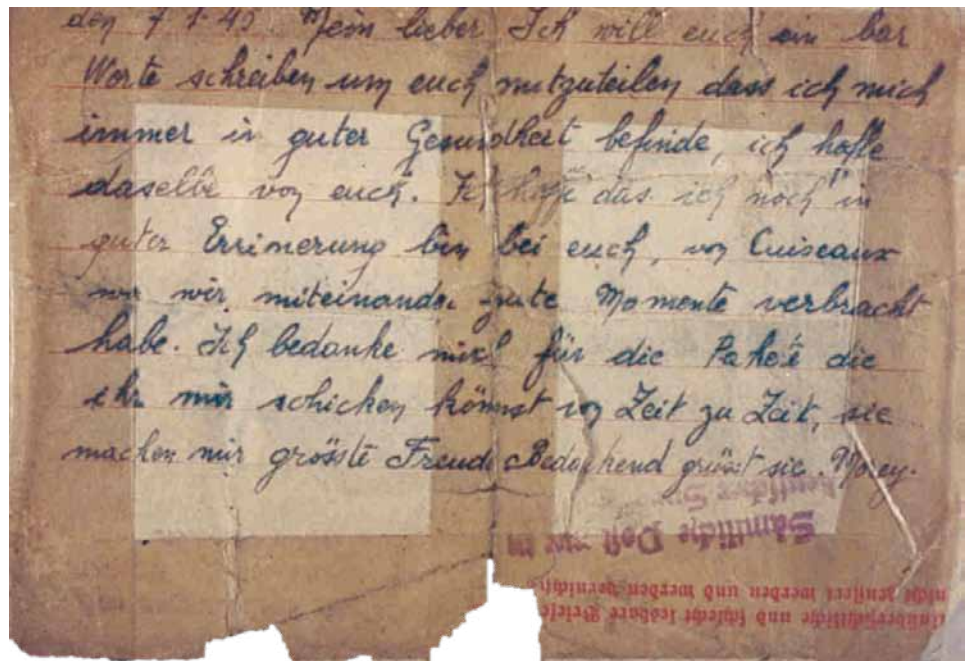 den 7.1.45. Mein lieber Ich will euch ein bar
Worte schreiben um euch mitzuteilen dass ich mich
immer in guter Gesundheit befinde, ich hoffe
daselbe von euch. Ich hoffe das ich noch in
guter Errimerung bin bei euch, von Cuiseaux
wo wir miteinander gute Momente verbracht
habe. Ich bedanke mich für die Pakete die
ihr mir schicken könnst von Zeit zu Zeit, sie
machen mir grösste Freude Bedankend grüsst sie Morey.
Sämtliche Post nur in
deutscher
Unübersichtliche und schlecht lesbare Briefe
nicht zensiert werden und werden vernichtet